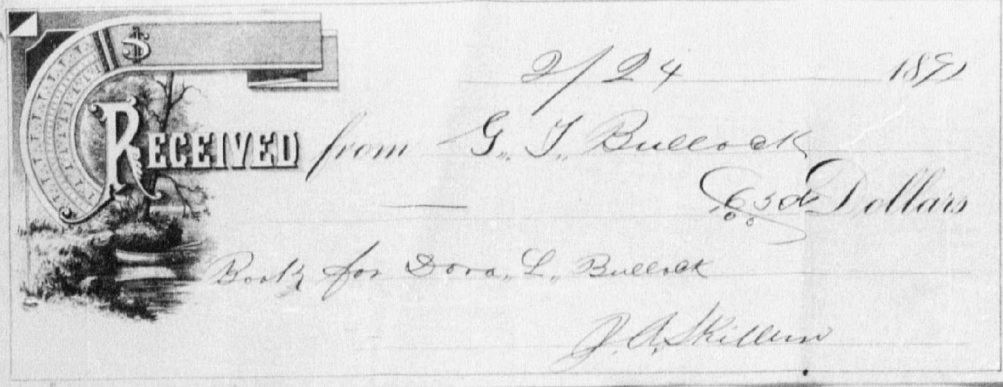 $
2/24 1891
RECEIVED from G. T. Bullock
Dollars
Book for Dora. L. Bullock
J. A. Skillern